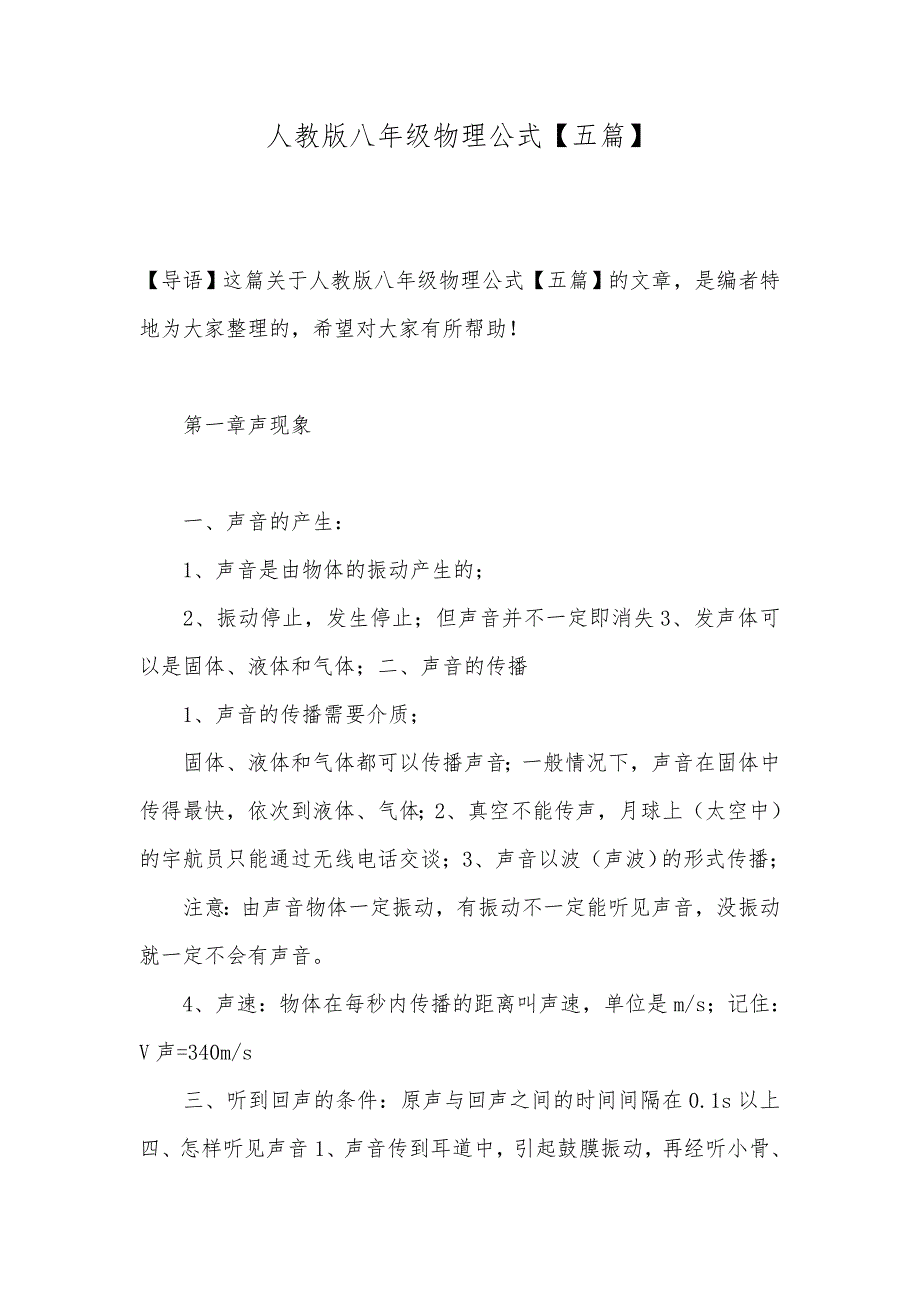 人教版八年级物理公式【五篇】
【导语】这篇关于人教版八年级物理公式【五篇】的文章，是编者特
地为大家整理的，希望对大家有所帮助！
第一章声现象
一、声音的产生：
1、声音是由物体的振动产生的；
2、振动停止，发生停止；但声音并不一定即消失3、发声体可
以是固体、液体和气体；二、声音的传播
1、声音的传播需要介质；
固体、液体和气体都可以传播声音；一般情况下，声音在固体中
传得最快，依次到液体、气体；2、真空不能传声，月球上（太空中）
的宇航员只能通过无线电话交谈；3、声音以波（声波）的形式传播；
注意：由声音物体一定振动，有振动不一定能听见声音，没振动
就一定不会有声音。
4、声速：物体在每秒内传播的距离叫声速，单位是m/s；记住：
V声=340m/s
三、听到回声的条件：原声与回声之间的时间间隔在0.1s以上
四、怎样听见声音1、声音传到耳道中，引起鼓膜振动，再经听小骨、